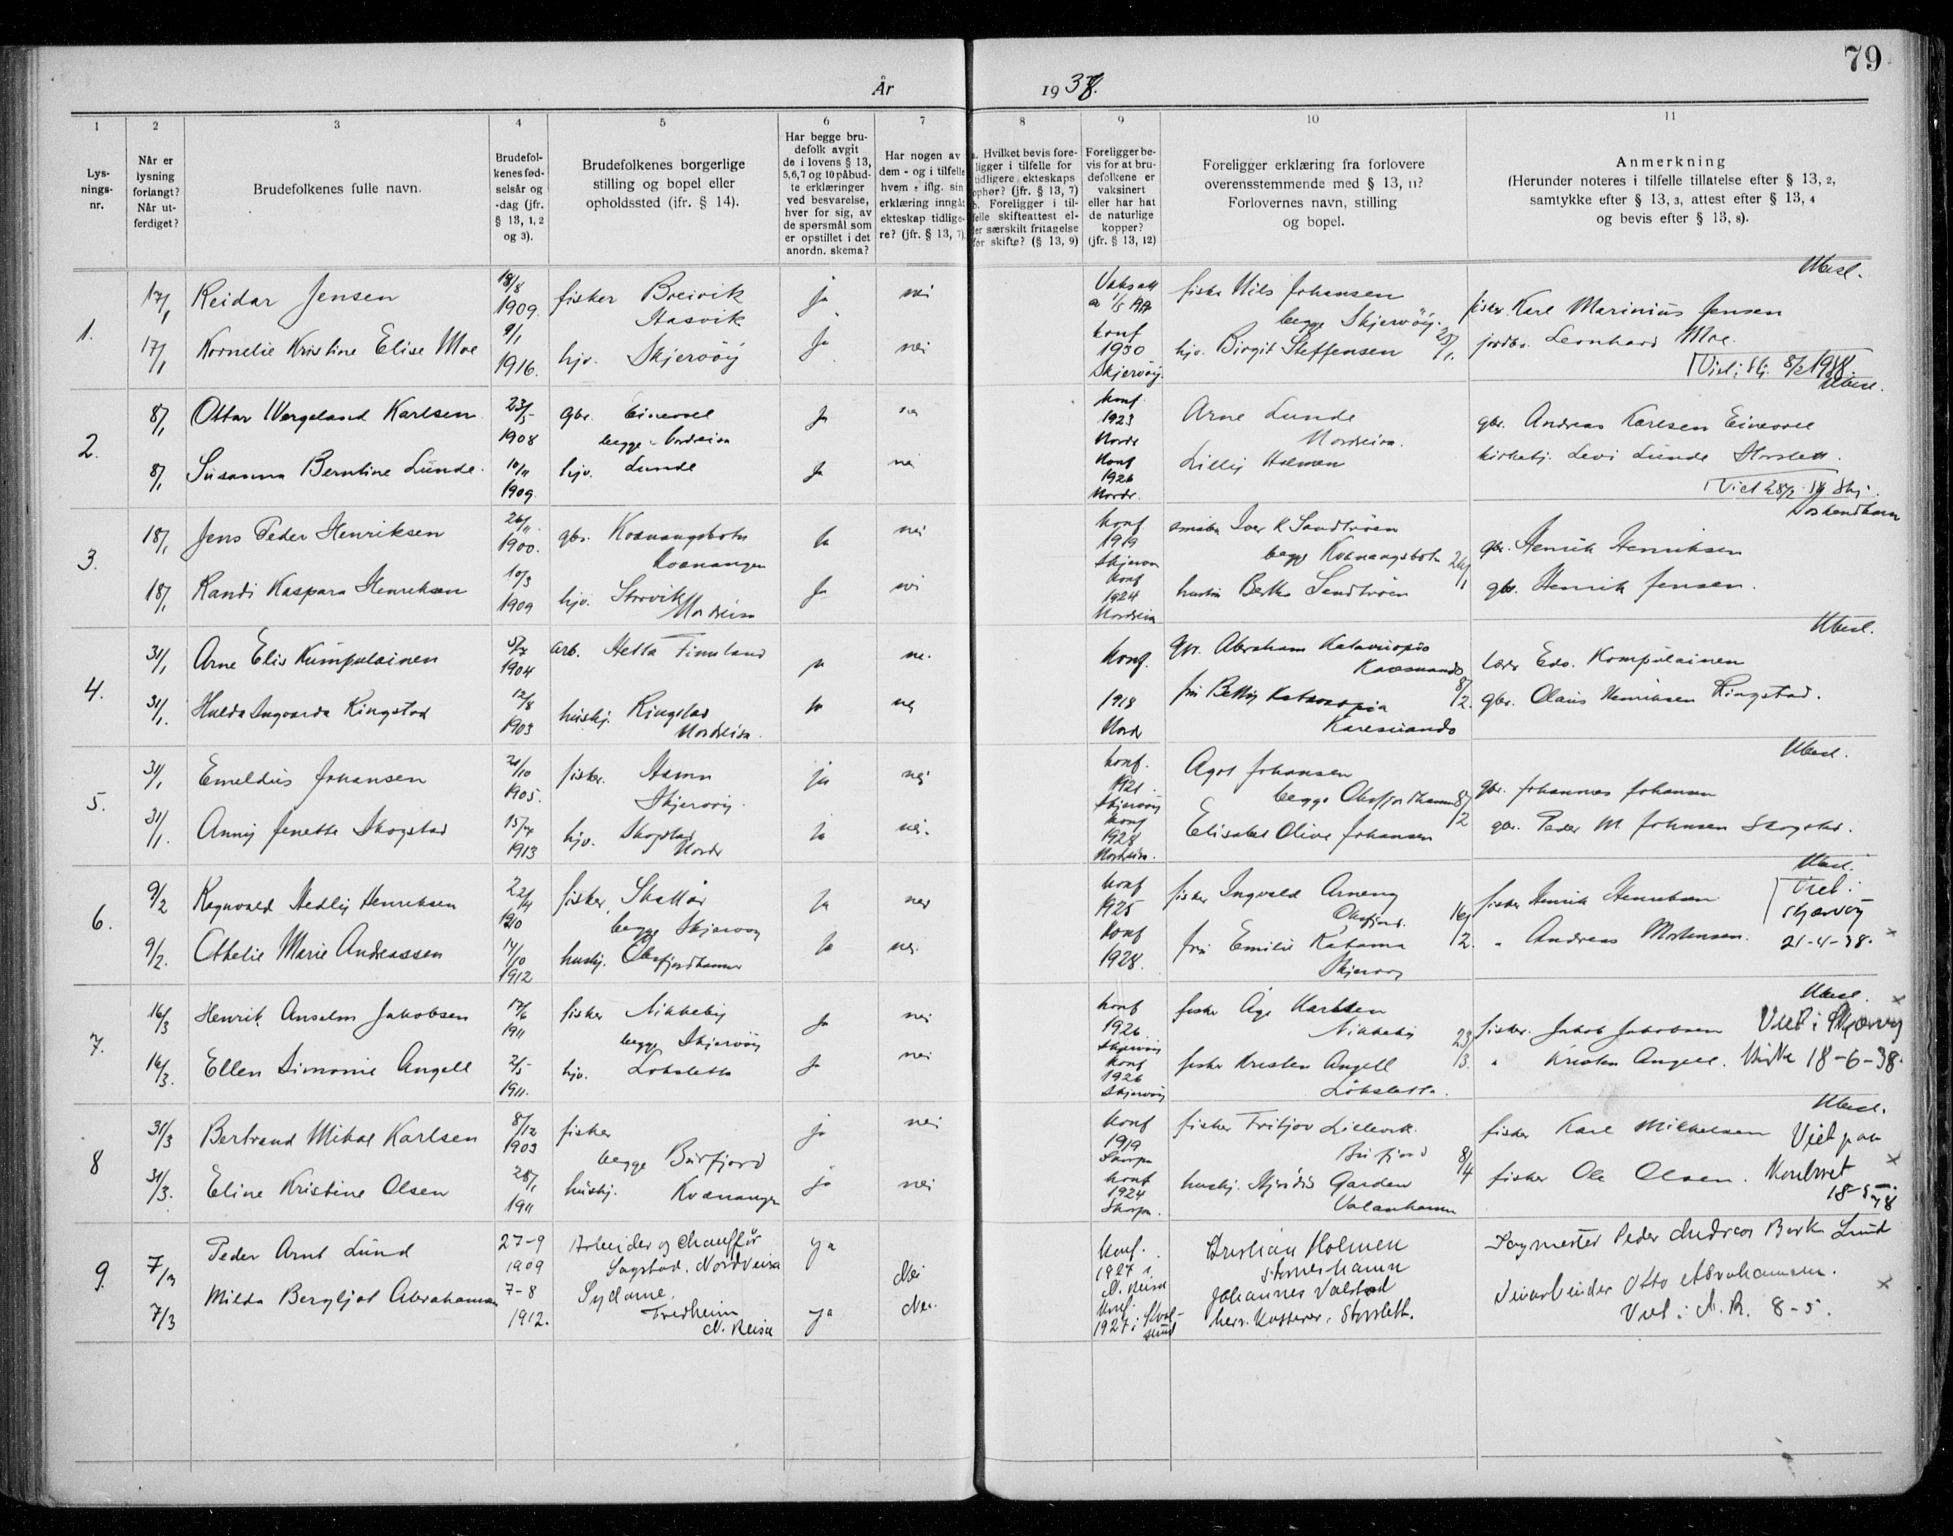 79
År 1938.
1 2 3 4 5 6 7 8 9 10 11
Lys-
nings-
nr.
Når er
lysning
forlangt?
Når ut-
ferdiget?
Brudefolkenes fulle navn.
Brudefol-
kenes fød-
selsår og
-dag (jfr.
§ 13, 1, 2
og 3).
Brudefolkenes borgerlige
stilling og bopel eller
opholdssted (ifr. § 14).
Har begge bru-
defolk avgit
de i lovens § 13,
5,6,7 og 10 påbud-
te erklæringer
ved besvarelse,
hver for sig, av
de spørsmål som
er opstillet i det
anordn. skema?
Har nogen av
dem - og i tilfelle
hvem - iflg. sin
erklæring inngåt
ekteskap tidlige-
re? (jfr. § 13, 7).
a. Hvilket bevis fore-
ligger i tilfelle for
tidligere ekteskaps
ophør? (jfr. § 13, 7)
b. Foreligger i til-
felle skifteattest el-
ler særskilt fritagelse
for skifte? (§ 13, 9)
Foreligger be-
vis for at bru-
defolkene er
vaksinert
eller har hat
de naturlige
kopper?
(jfr. § 13, 12)
Foreligger erklæring fra forlovere
overensstemmende med § 13, 11?
Forlovernes navn, stilling
og bopel.
Anmerkning
(Herunder noteres i tilfelle tillatelse efter § 13, 2,
samtykke efter § 13, 3, attest efter § 13, 4
og bevis efter § 13, 8).
1.
17/1 Reidar Jensen 18/8 1909. fisker Breivik Hasvik ja nei
fisker Nils Johansen begge Skjervøy. fisker Karl Marinius Jensen Ubesl.
17/1 Kornelie Kristine Elise Moe 9/1 1916. hjv. Skjervøy ja nei
konf 1930 Skjervøy. hjv. Birgit Steffensen jordbr. Leonhard Moe.
Viet i Skj. 8/2 1938.
2.
8/1 Ottar Wergeland Karlsen 23/5 1908 gbr. Einevoll begge Nordreisa ja
konf. 1923 Nordr Arne Lunde Nordreisa. gbr. Andreas Karlsen Einevoll Ubesl.
8/1 Susanna Berntine Lunde. 10/11 1909. hjv. Lunde ja nei
konf 1926 Nordr. Lilly Holmen kirketj. Levi Lunde Storslett.
3.
18/1 Jens Peder Henriksen 26/11 1900. gbr. Kvænangsbotn Kvænangen ja nei
konf 1919 Skjervøy Iver K Sandtrøen begge Kvænangsbotn 26/1 gbr. Henrik Henriksen
18/1 Randi Kaspara Henriksen 10/3 1909 hjv. Storvik Nordreisa ja nei
konf 1924 Nordreisa Sandtrøen gbr. Henrik Jensen.
4.
31/1 Arne Elis Kumpulainen 5/7 1904 arb. Hetta Finnland ja nei
konf. gbr. Abraham Karesuando 8/2. lærer Edv. Kompulainen Ubesl.
31/1. Hulda Ingvarda Ringstad 12/8 1903 hushj. Ringstad Nordreisa. ja nei
1918 Nordr fru Betty Karesuando gbr. Olaus Henriksen Ringstad.
5.
31/1 Emeldus Johansen 21/10 1905. fisker. Hamn Skjervøy. ja nei
konf. 1921. Skjervøy Agot Johansen begge Oksfjordhamn 8/2 gbr. Johannes Johansen Ubesl.
31/1. Anny Jenette Skogstad 15/7 1913 hjv. Skogstad Nordr ja nei.
konf 1928 Nordreisa. Elisabet Olive Johansen gbr. Peder M Johnsen Skogstad.
6.
9/2 Ragnvald Hedley Henriksen 22/4 1910 fisker, Skattør begge Skjervøy ja nei
konf 1925 fisker Ingvald Arneng Oksfjord. 16/2. fisker Henrik Henriksen Ubesl. Viet i Skjervøy
9/2. Othelie Marie Andreassen 14/10 1912 hushj. Oksfjordhamn ja nei.
konf 1928. fru Emilie Skjervøy " Andreas Mortensen. 21-4-38. x
7.
16/3 Henrik Anselm Jakobsen 17/6 1911 fisker Nikkeby begge Skjervøy ja nei
konf 1926 Skjervøy fisker Åge Karlsen Nikkeby 23/3. fisker. Jakob Jakobsen Ubesl. x Viet i Skjervøy
16/3. Ellen Simonie Angell 2/5 1911. hjv. Lökslette ja nei
konf 1926 Skjervøy fisker Kristen Angell Lökslette. " Kristen Angell. 18-6-38.
8
31/3 Bertrand Mikal Karlsen 8/12 1903 fisker begge Burfjord ja nei
konf 1919 fisker Fritjov Lillevik. Burfjord 8/4 fisker Karl Mikkelsen Ubesl. Viet paa
31/3. Eline Kristine Olsen 28/1 1911 hushj. Kvænangen ja nei
konf 1924 hushj. Garden Valanhamn fisker Ole Olsen. x
9.
7/3 Peder Arnt Lund 27-9 1909 Arbeider og chauffør Sagstad. Nordreisa ja Nei
Konf. 1927 i N. Reisa Kristian Holmen Sørneshamn Peder Andreas Lund
7/3 Milda Bergljot Abrahamsen 7-8 1912. Sydame. Fredheim N. Reisa ja Nei.
Konf. 1927 i Kval-sund Johannes herr. Kasserer, Storslett. Veiarbeider Otto Abrahamsen. x
Viet i N. R. 8-5.